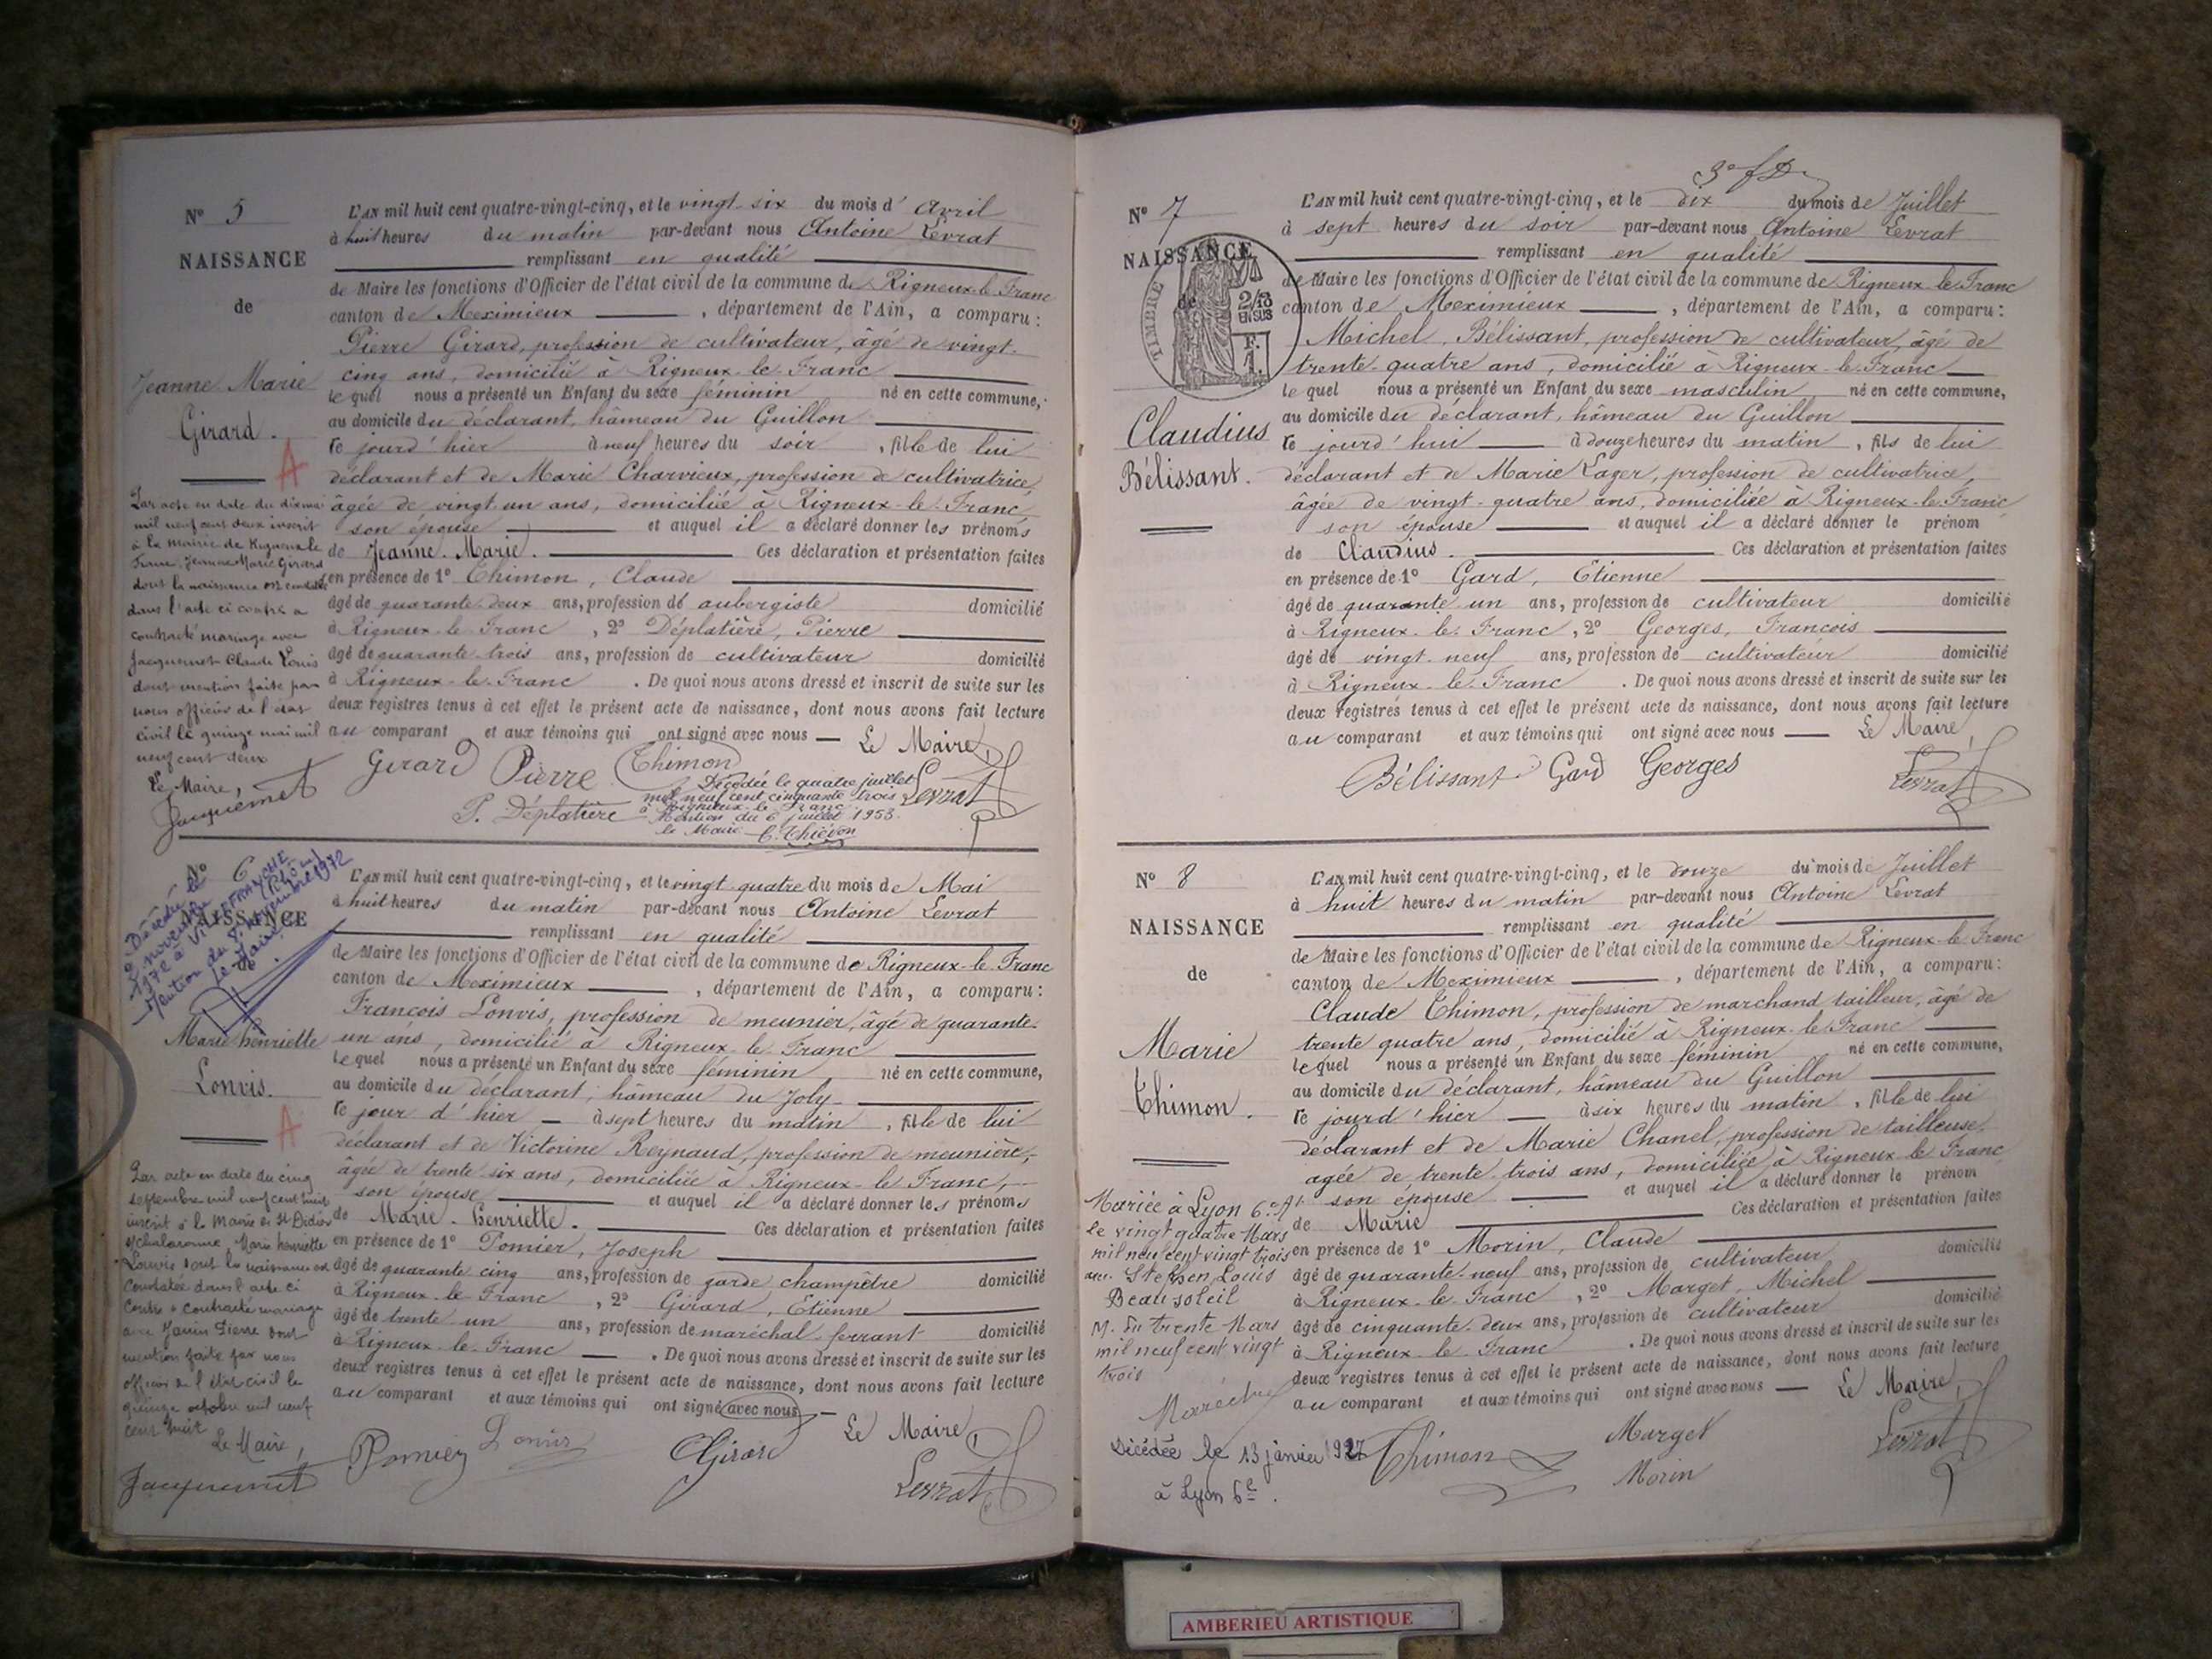 N° 5
NAISSANCE
de
Jeanne Marie
Girard.
A
L'AN mil huit cent quatre-vingt-cinq, et le vingt-six du mois d'Avril
à huit heures du matin par-devant nous Antoine Levrat
remplissant en qualité
de Maire les fonctions d'Officier de l'état civil de la commune de Rigneux-le-Franc
canton de Meximieux, département de l'Ain, a comparu :
Pierre Girard, profession de cultivateur, âgé de vingt-
cinq ans, domicilié à Rigneux-le-Franc
lequel nous a présenté un Enfant du sexe féminin né en cette commune,
au domicile du déclarant, hâmeau du Guillon
le jourd'hier à neuf heures du soir, fille de lui
déclarant et de Marie Charvieux, profession de cultivatrice,
âgée de vingt-un ans, domiciliée à Rigneux-le-Franc,
son épouse et auquel il a déclaré donner les prénoms
de Jeanne-Marie. Ces déclaration et présentation faites
en présence de 1° Thimon, Claude
âgé de quarante-deux ans, profession de aubergiste domicilié
à Rigneux-le-Franc, 2° Déplatière, Pierre
âgé de quarante-trois ans, profession de cultivateur domicilié
à Rigneux-le-Franc. De quoi nous avons dressé et inscrit de suite sur les
deux registres tenus à cet effet le présent acte de naissance, dont nous avons fait lecture
au comparant et aux témoins qui ont signé avec nous — Le Maire,
Girard Pierre Thimon
P. Déplatière Levrat
Décédée le quatre juillet
mil neuf cent cinquante trois
à Rigneux-le-Franc.
Mention du 6 juillet 1953.
le Maire
Par acte en date du dix mai
mil neuf cent deux inscrit
à la mairie de Rigneux le
Franc, Jeanne Marie Girard
dont la naissance est constatée
dans l'acte ci contre a
contracté mariage avec
Jacquemet Claude Louis
dont mention faite par
nous officier de l'état
civil le quinze mai mil
neuf cent deux
Le Maire,
Jacquemet
N° 6
NAISSANCE
de
Marie Henriette
Lonvis.
A
Décédée le
novembre
1972 à VILLEFRANCHE
(Rhône)
Mention du 8 novembre 1972
le Maire
L'AN mil huit cent quatre-vingt-cinq, et le vingt-quatre du mois de Mai
à huit heures du matin par-devant nous Antoine Levrat
remplissant en qualité
de Maire les fonctions d'Officier de l'état civil de la commune de Rigneux-le-Franc
canton de Meximieux, département de l'Ain, a comparu :
François Lonvis, profession de meunier, âgé de quarante-
un ans, domicilié à Rigneux-le-Franc
lequel nous a présenté un Enfant du sexe féminin né en cette commune,
au domicile du déclarant, hâmeau du Joly
le jour d'hier — à sept heures du matin, fille de lui
déclarant et de Victorine Reynaud, profession de meunière,
âgée de trente-six ans, domiciliée à Rigneux-le-Franc,
son épouse et auquel il a déclaré donner les prénoms
de Marie-Henriette. Ces déclaration et présentation faites
en présence de 1° Pomier, Joseph
âgé de quarante cinq ans, profession de garde champêtre domicilié
à Rigneux-le-Franc, 2° Girard, Etienne
âgé de trente-un ans, profession de maréchal-ferrant domicilié
à Rigneux-le-Franc —. De quoi nous avons dressé et inscrit de suite sur les
deux registres tenus à cet effet le présent acte de naissance, dont nous avons fait lecture
au comparant et aux témoins qui ont signé avec nous — Le Maire,
Pomier Lonvis Girard Levrat
Par acte en date du cinq
septembre mil neuf cent huit
inscrit à la Mairie de St Didier
s/Chalaronne, Marie henriette
Lonvis dont la naissance est
constatée dans l'acte ci
contre a contracté mariage
avec Janin Pierre dont
mention faite par nous
officier de l'état civil le
quinze octobre mil neuf
cent huit
Le Maire,
Jacquemet
3e f
N° 7
NAISSANCE
de
TIMBRE
2/10
EN SUS
F.
1.
Claudius
Bélissant.
L'AN mil huit cent quatre-vingt-cinq, et le dix du mois de Juillet
à sept heures du soir par-devant nous Antoine Levrat
remplissant en qualité
de Maire les fonctions d'Officier de l'état civil de la commune de Rigneux-le-Franc
canton de Meximieux, département de l'Ain, a comparu :
Michel Bélissant, profession de cultivateur, âgé de
trente-quatre ans, domicilié à Rigneux-le-Franc —
lequel nous a présenté un Enfant du sexe masculin né en cette commune,
au domicile du déclarant, hâmeau du Guillon
le jourd'hui — à douze heures du matin, fils de lui
déclarant et de Marie Lager, profession de cultivatrice,
âgée de vingt-quatre ans, domiciliée à Rigneux-le-Franc
son épouse et auquel il a déclaré donner le prénom
de Claudius. Ces déclaration et présentation faites
en présence de 1° Gard, Etienne
âgé de quarante-un ans, profession de cultivateur domicilié
à Rigneux-le-Franc, 2° Georges, François
âgé de vingt-neuf ans, profession de cultivateur domicilié
à Rigneux-le-Franc. De quoi nous avons dressé et inscrit de suite sur les
deux registres tenus à cet effet le présent acte de naissance, dont nous avons fait lecture
au comparant et aux témoins qui ont signé avec nous — Le Maire,
Bélissant Gard Georges Levrat
N° 8
NAISSANCE
de
Marie
Thimon.
L'AN mil huit cent quatre-vingt-cinq, et le douze du mois de Juillet
à huit heures du matin par-devant nous Antoine Levrat
remplissant en qualité
de Maire les fonctions d'Officier de l'état civil de la commune de Rigneux-le-Franc
canton de Meximieux, département de l'Ain, a comparu :
Claude Thimon, profession de marchand tailleur, âgé de
trente quatre ans, domicilié à Rigneux-le-Franc
lequel nous a présenté un Enfant du sexe féminin né en cette commune,
au domicile du déclarant, hâmeau du Guillon
le jourd'hier — à six heures du matin, fille de lui
déclarant et de Marie Chanel, profession de tailleuse,
agée de trente-trois ans, domiciliée à Rigneux le Franc
son épouse et auquel il a déclaré donner le prénom
de Marie Ces déclaration et présentation faites
en présence de 1° Morin, Claude
âgé de quarante-neuf ans, profession de cultivateur domicilié
à Rigneux-le-Franc, 2° Marget, Michel
âgé de cinquante-deux ans, profession de cultivateur domicilié
à Rigneux-le-Franc. De quoi nous avons dressé et inscrit de suite sur les
deux registres tenus à cet effet le présent acte de naissance, dont nous avons fait lecture
au comparant et aux témoins qui ont signé avec nous — Le Maire,
Thimon Marget Morin Levrat
Mariée à Lyon 6e At
le vingt quatre Mars
mil neuf cent vingt trois
avec Stephen Louis
Beausoleil
M. du trente Mars
mil neuf cent vingt
trois
Décédée le 13 janvier 1927
à Lyon 6e.
AMBERIEU ARTISTIQUE